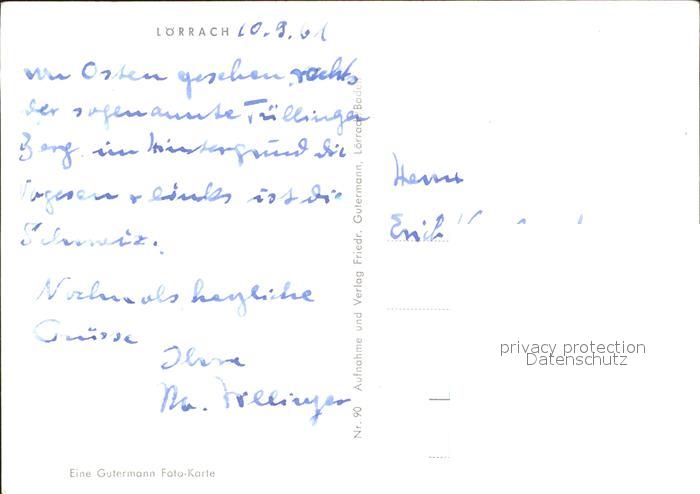 LÖRRACH 10.9.61
von Osten gesehen, rechts
der sogenannte Tüllinger
Berg, im Hintergrund die
Vogesen & links ist die
Schweiz.
Nochmals herzliche
Grüsse
Ihre
Nr. 90 Aufnahme und Verlag Friedr. Gutermann, Lörrach/Baden
Herrn
Erich
privacy protection
Datenschutz
Eine Gutermann Foto-Karte